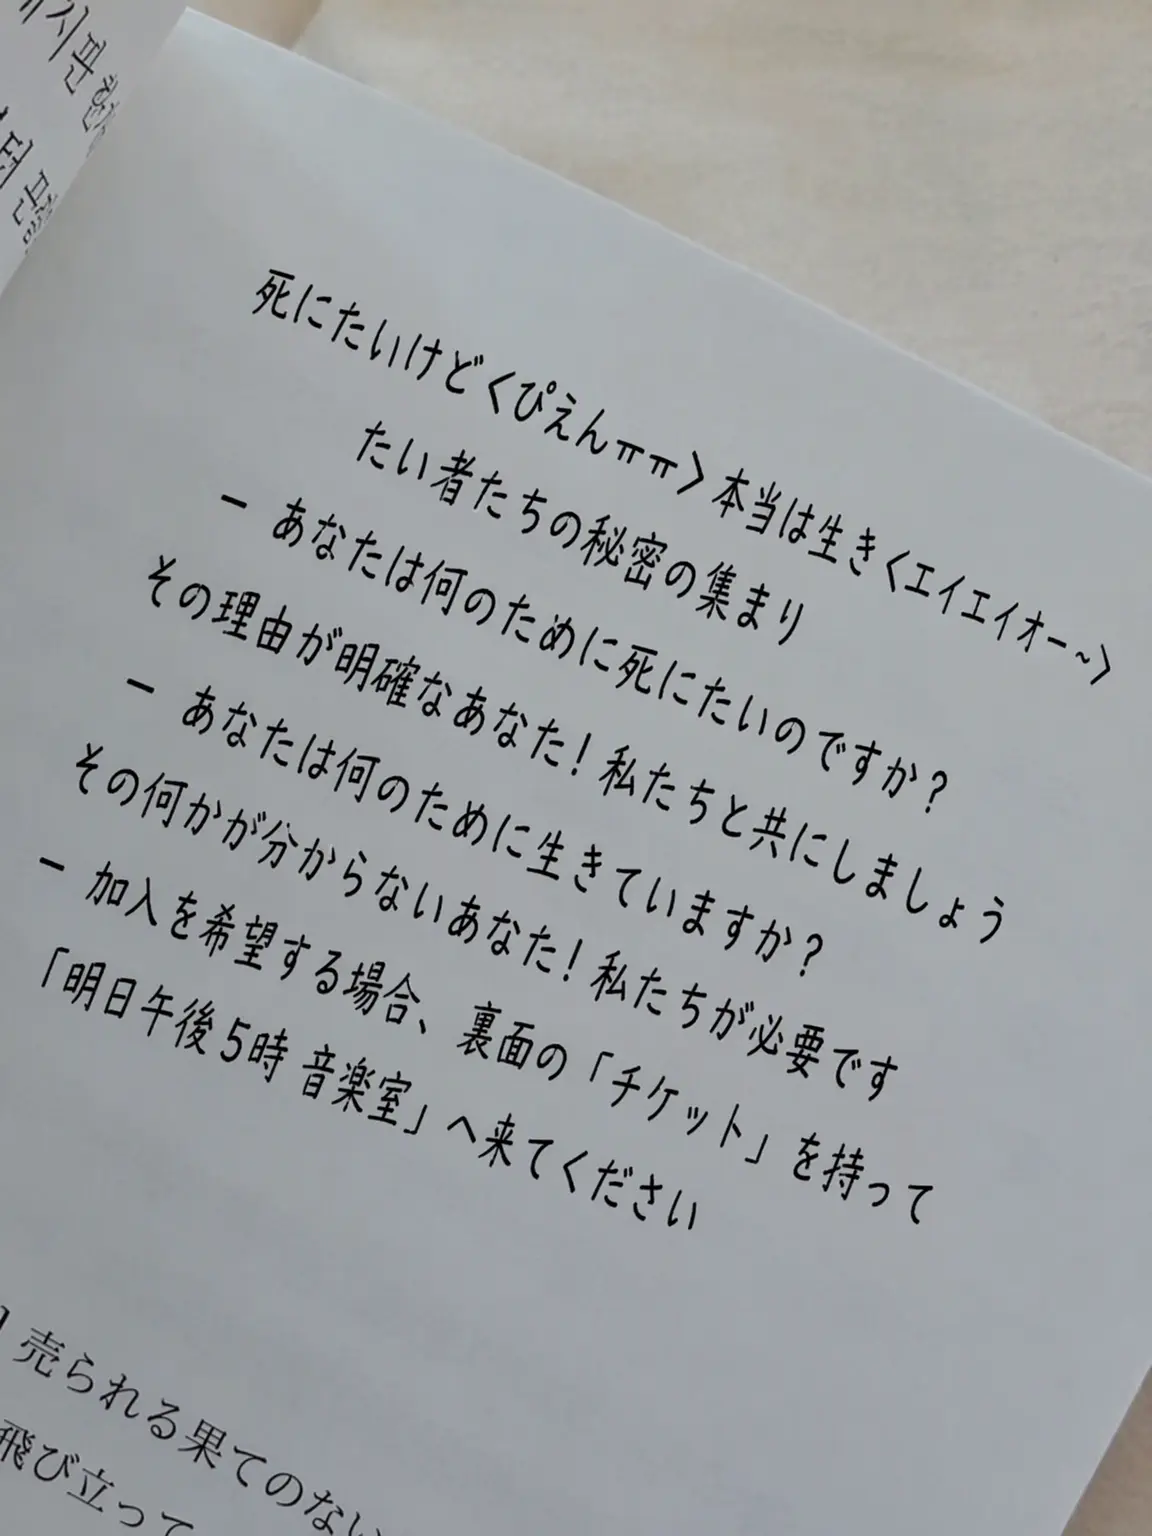 死にたいけど<ぴえんㅠㅠ>本当は生き<エイエイオー~>
たい者たちの秘密の集まり
- あなたは何のために死にたいのですか?
その理由が明確なあなた! 私たちと共にしましょう
- あなたは何のために生きていますか?
その何かが分からないあなた! 私たちが必要です
- 加入を希望する場合、裏面の「チケット」を持って
「明日午後5時 音楽室」へ来てください
売られる果てのない
飛び立って